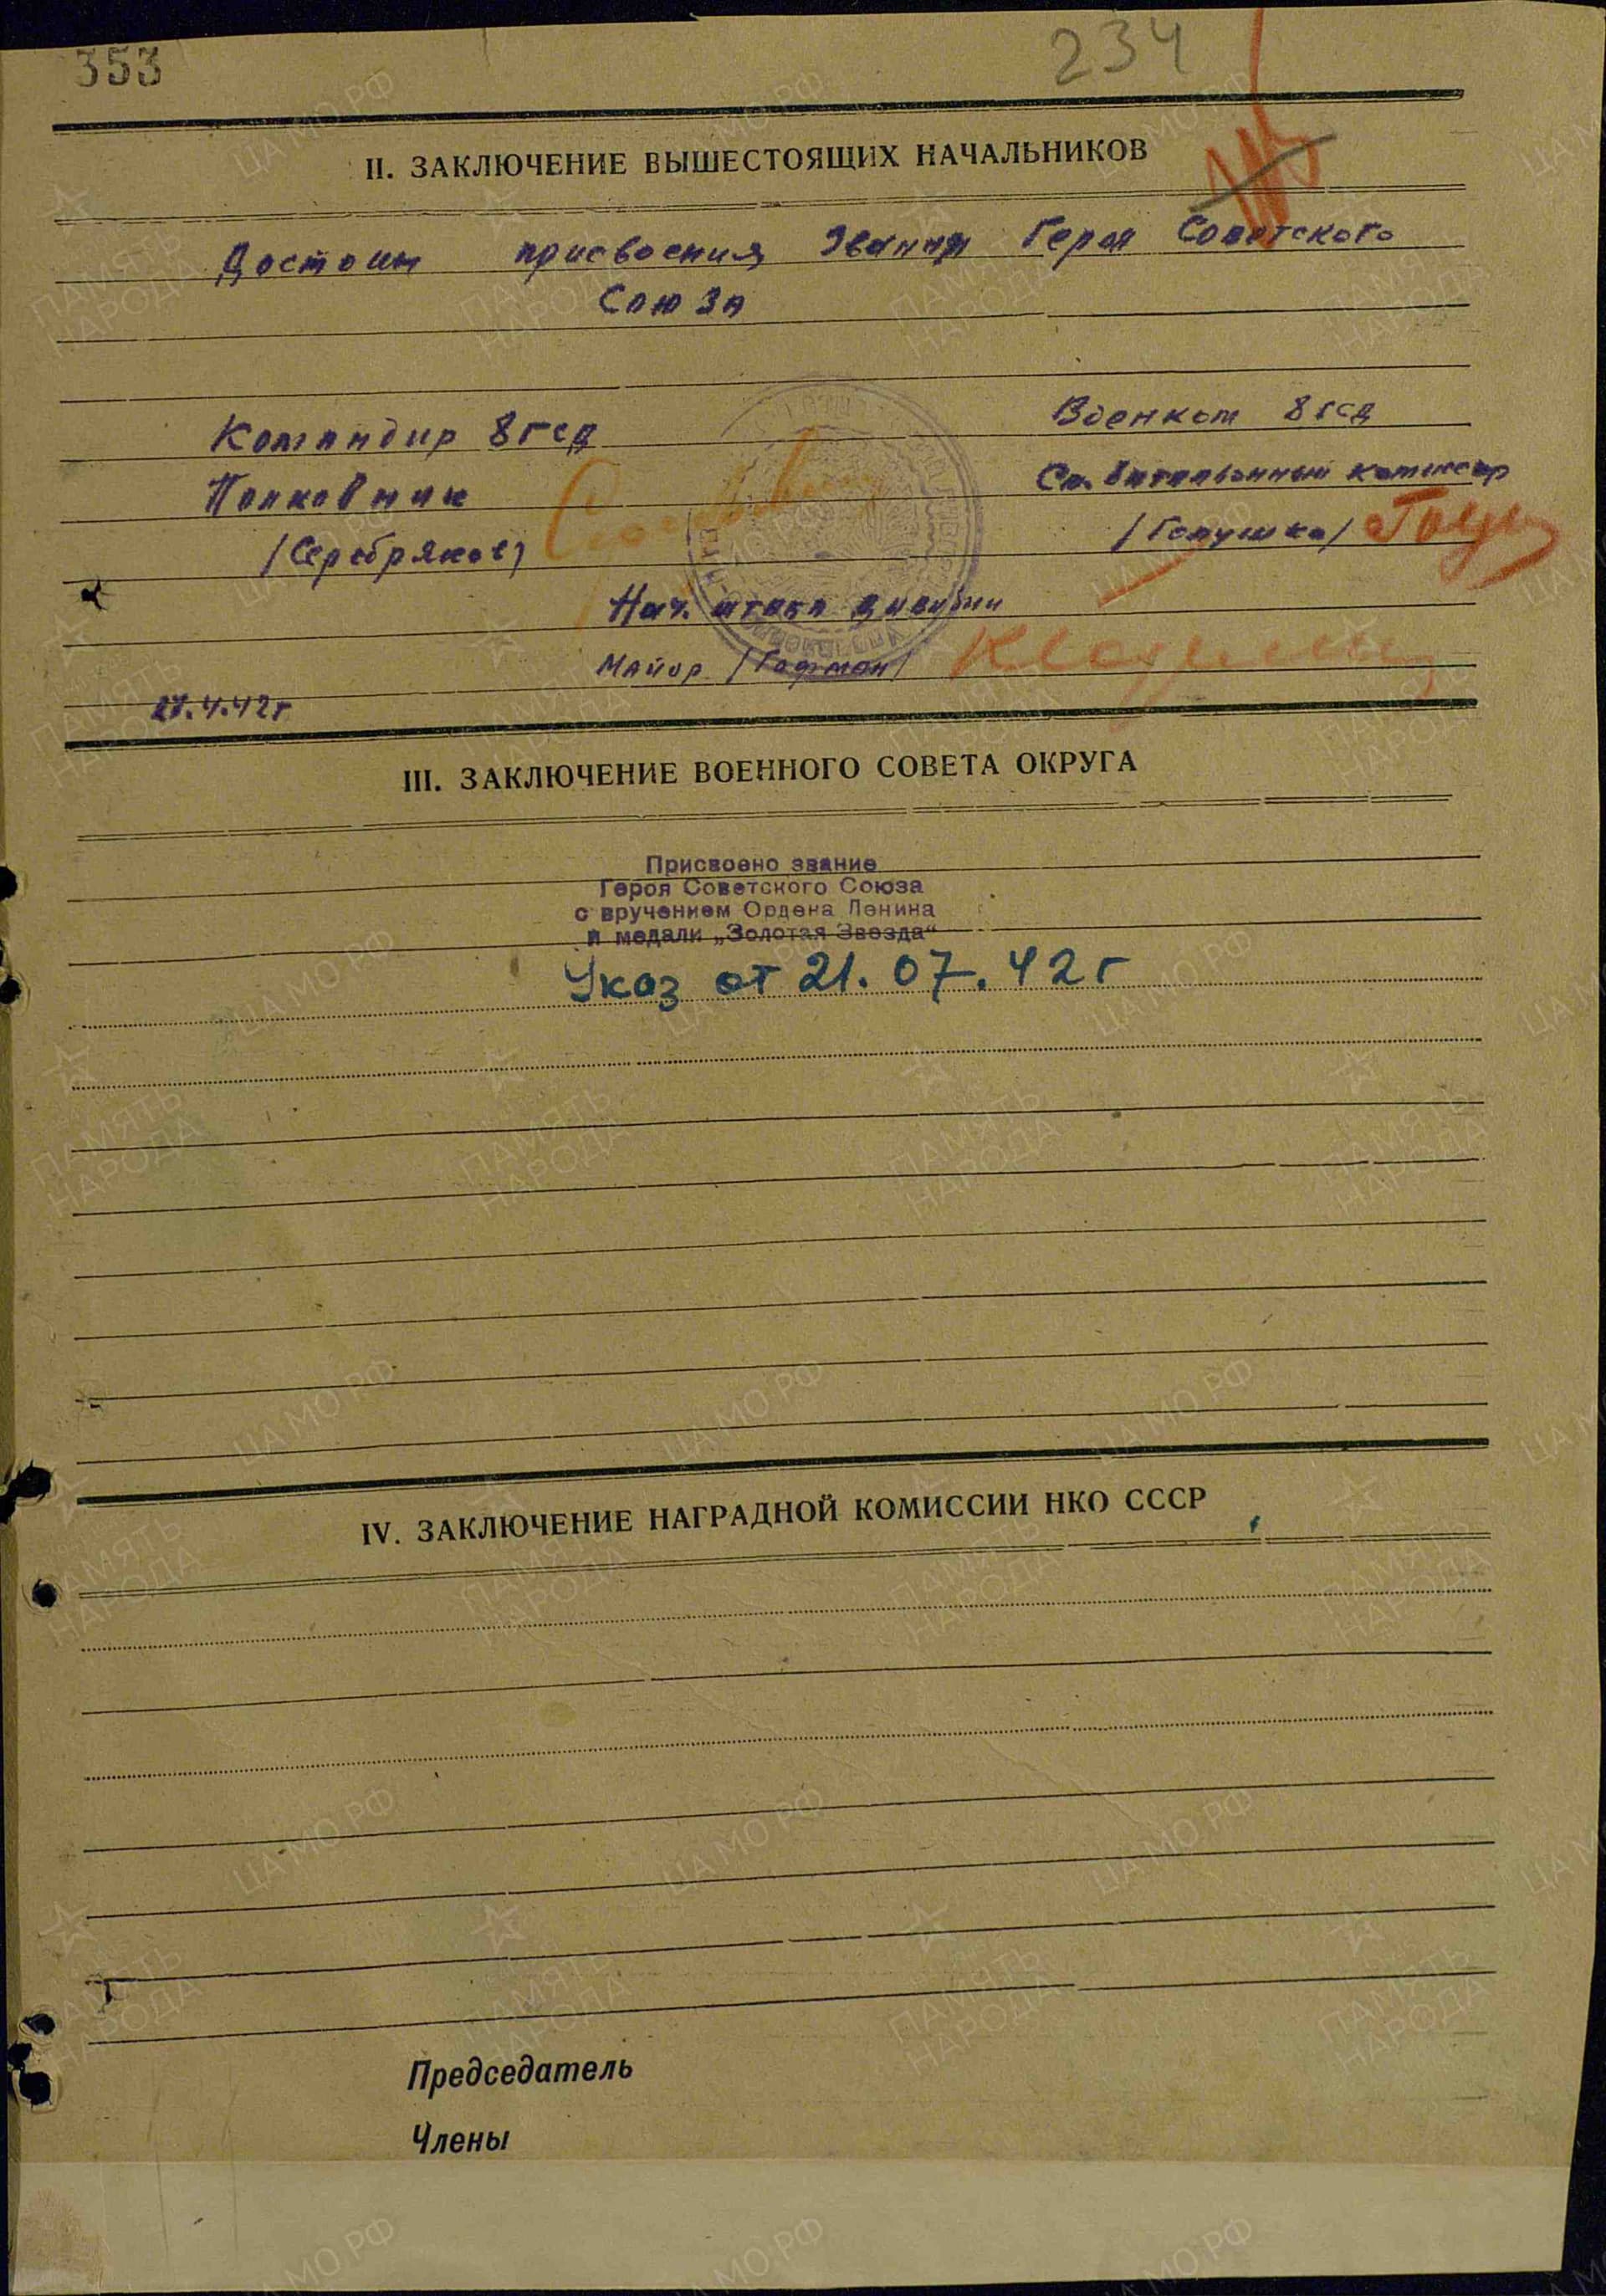 353
234
II. ЗАКЛЮЧЕНИЕ ВЫШЕСТОЯЩИХ НАЧАЛЬНИКОВ
Достоин присвоения звания Героя Советского
Союза
Командир 8 гсд
Военком 8 гсд
Полковник
Ст. батальонный комиссар
/Серебряков/
/Галушко/
Нач. штаба дивизии
Майор /Гофман/
27.4.42г
III. ЗАКЛЮЧЕНИЕ ВОЕННОГО СОВЕТА ОКРУГА
Присвоено звание
Героя Советского Союза
с вручением Ордена Ленина
и медали „Золотая Звезда“
Указ от 21.07.42г
IV. ЗАКЛЮЧЕНИЕ НАГРАДНОЙ КОМИССИИ НКО СССР
Председатель
Члены
ПАМЯТЬ НАРОДА
ЦА МО РФ